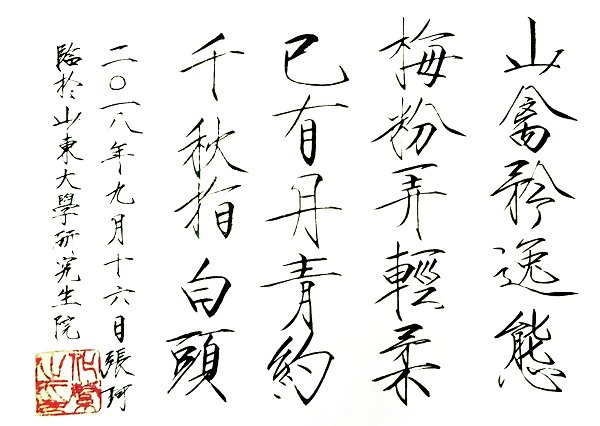 山禽矜逸態
梅粉弄輕柔
已有丹青約
千秋指白頭
二〇一八年九月十六日張珂
臨於山東大學研究生院